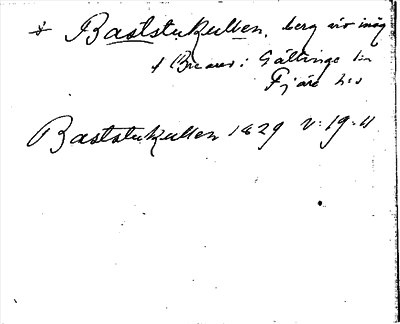 * Baststukullen, berg
i Gällinge sn
Fjäre hd
Baststukullen 1829 V:19-11